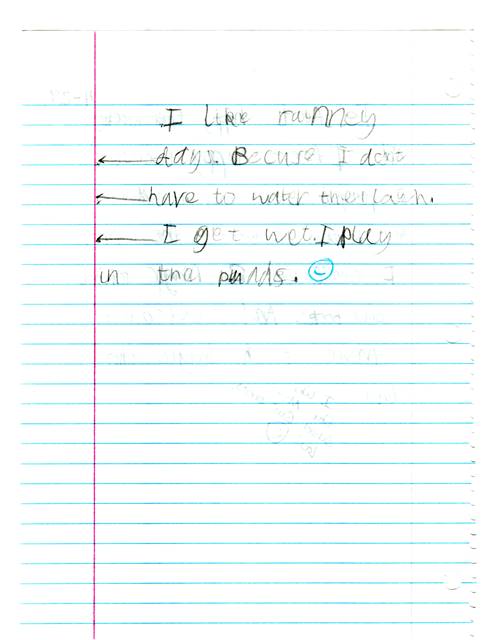 I like rainney
days. Becuse I dont
have to water the lawn.
I get wet. I play
in the pudds.